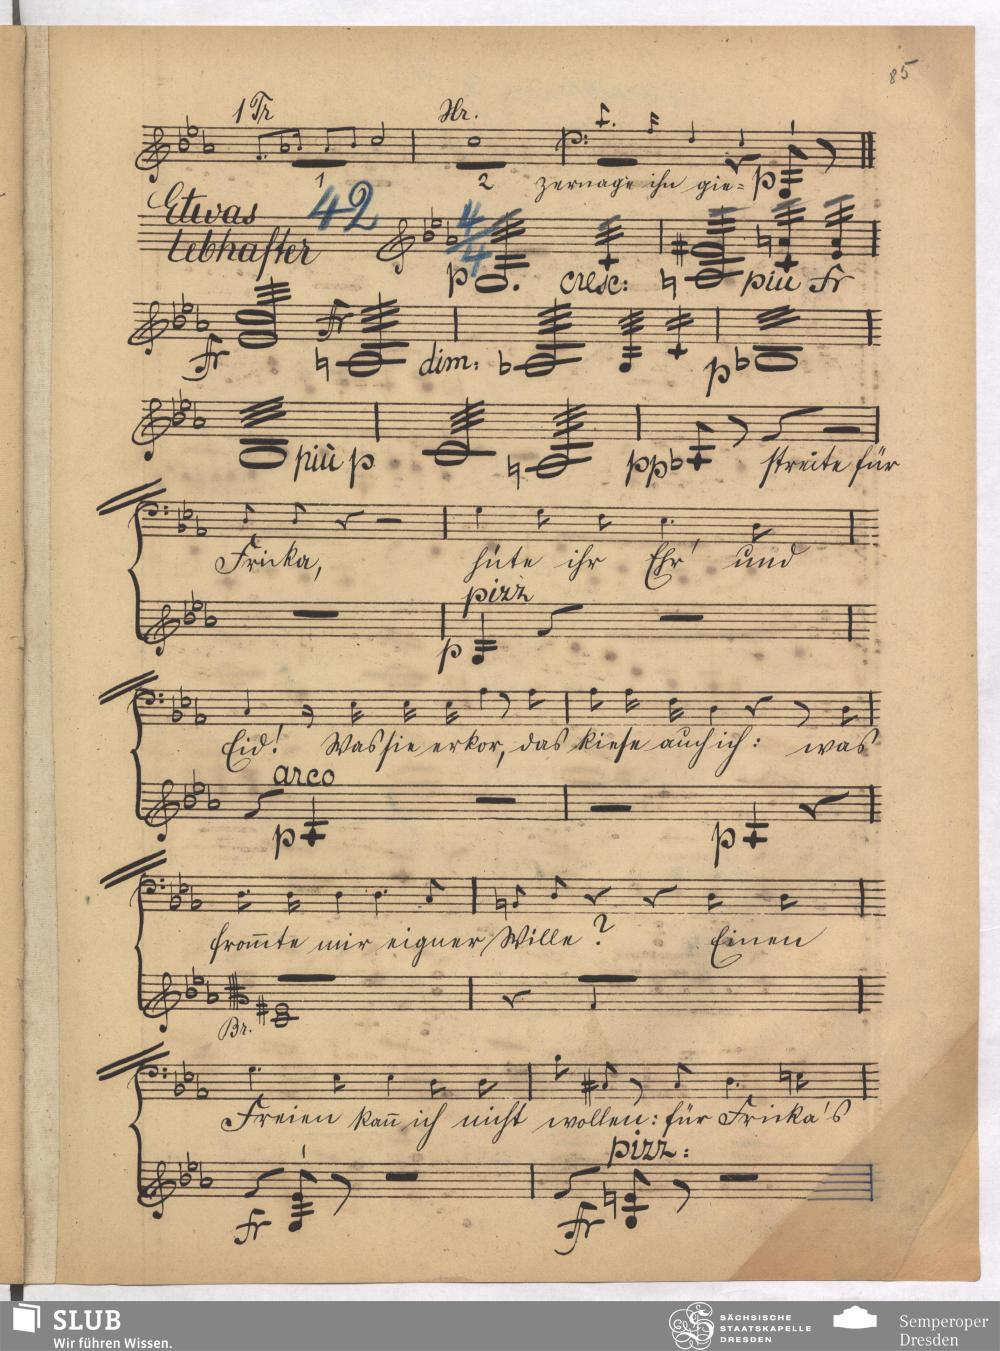 85
1 Tr Hr.
1 2 zernage ihn gie= p
Etwas 42 4/4
lebhafter
p cresc: più Fr
Fr Fr dim: p
più p ppp streite für
Fricka, hüte ihr Ehr' und
pizz
p
Eid! Was sie erkor, das kiese auch ich: was
arco
p p
from̄te mir eigner Wille? Einen
Br.
Freien kan̄ ich nicht wollen: für Fricka's
pizz:
Fr Fr
SLUB
Wir führen Wissen.
SÄCHSISCHE
STAATSKAPELLE
DRESDEN
Semperoper
Dresden